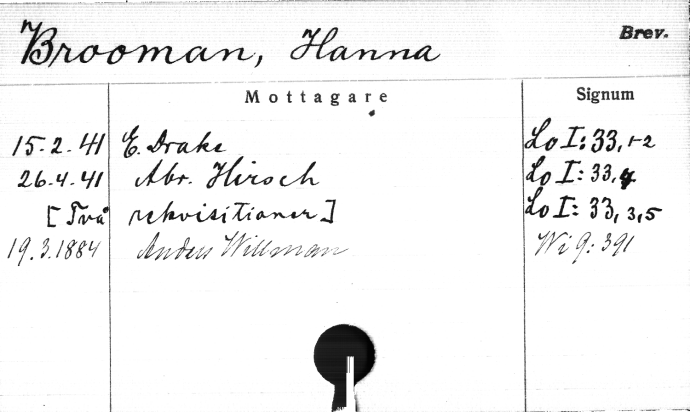 Brooman, Hanna Brev.
Mottagare Signum
15.2.41 E. Drake Lo I: 33, 1-2
26.4.41 Abr. Hirsch Lo I: 33, 4
[Två rekvisitioner] Lo I: 33, 3, 5
19.3.1884 Anders Willman Wi 9: 391